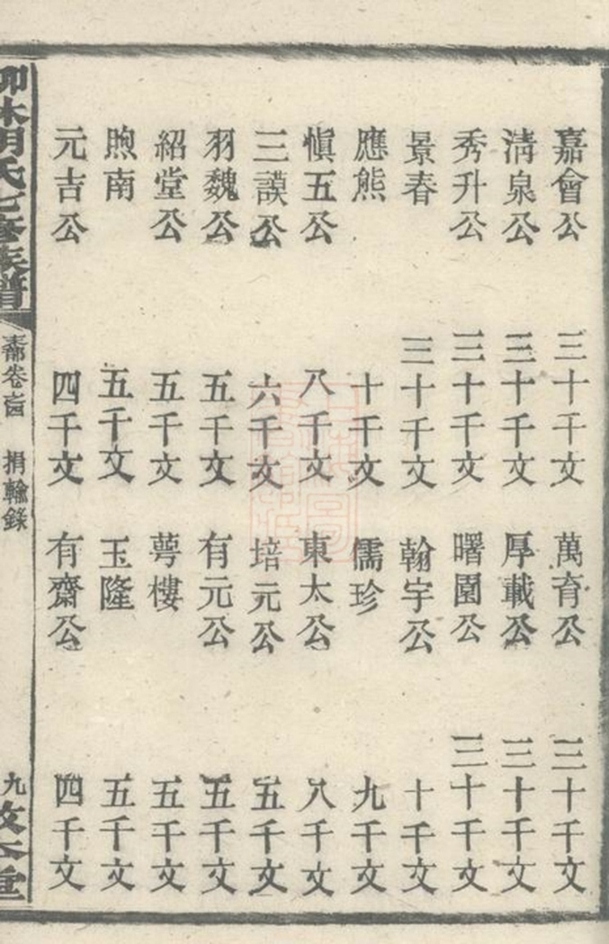 嘉會公 三十千文 萬育公 三十千文
清泉公 三十千文 厚載公 三十千文
秀升公 三十千文 曙園公 三十千文
景春 三十千文 翰宇公 十千文
應熊 十千文 儒珍 九千文
愼五公 八千文 東太公 八千文
三謨公 六千文 培元公 五千文
羽魏公 五千文 有元公 五千文
紹堂公 五千文 萼樓 五千文
煦南 五千文 玉隆 五千文
元吉公 四千文 有齋公 四千文
氏七修族譜 卷首 捐輸錄 九 敦本堂